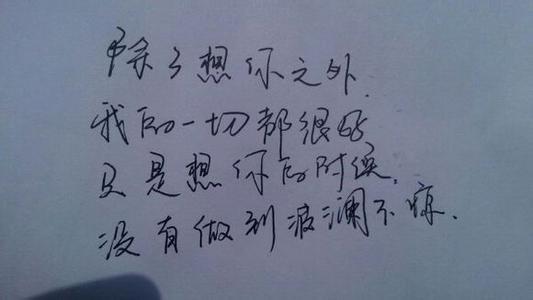 除了想你之外，
我的一切都很好
只是想你的时候，
没有做到波澜不惊.